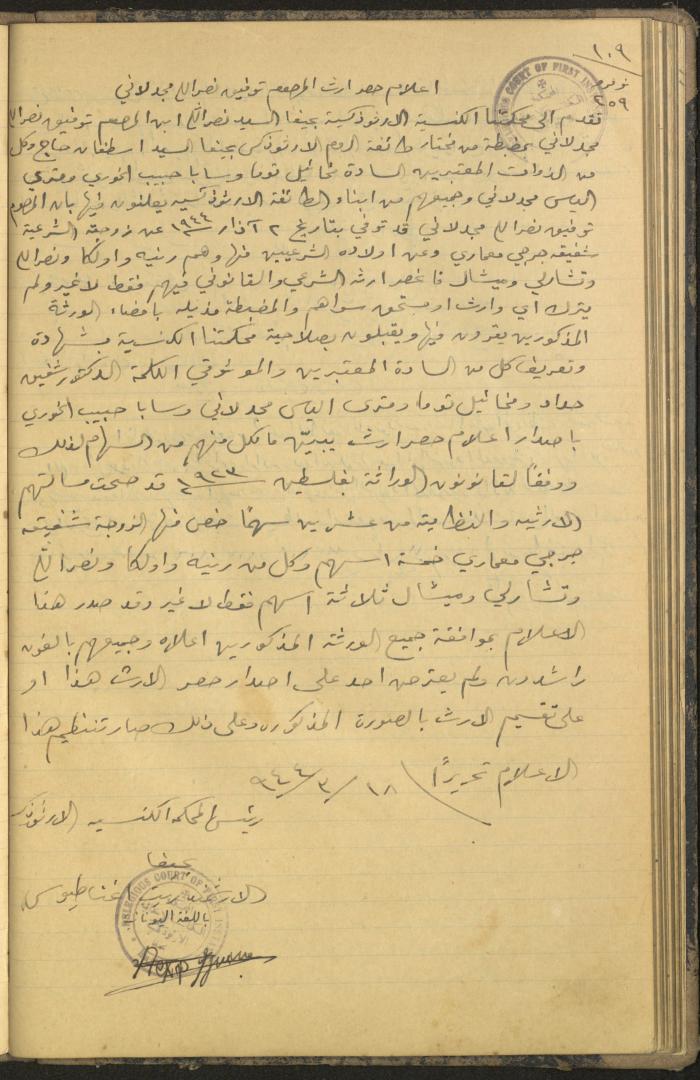 ١٠٩
نومرو
٢٥٩
اعلام حصر ارث المرحوم توفيق نصرالله مجدلاني
RELIGIOUS COURT OF FIRST INST
تقدم الى محكمتنا الكنسية الارثوذكسية بحيفا السيد نصرالله ابن المرحوم توفيق نصرالله
مجدلاني بمضبطة من مختار طائفة الروم الارثوذكس بحيفا السيد اسطفان حناج وكل
من الذوات المعتبرين السادة مخائيل توما وسابا حبيب الخوري ومتري
الياس مجدلاني وجميعهم من ابناء الطائفة الارثوذكسية يعلنون فيها بان المرحوم
توفيق نصرالله مجدلاني قد توفي بتاريخ ٢ آذار ١٩٤٤ عن زوجته الشرعية
شفيقه جرجي معماري وعن اولاده الشرعيين منها وهم رنيه واولكا ونصرالله
وتشارلي وميشال فانحصر ارثه الشرعي والقانوني فيهم فقط لا غير ولم
يترك اي وارث او مستحق سواهم والمضبطة مذيله بامضاء الورثة
المذكورين يقرون فيها ويقبلون بصلاحية محكمتنا الكنسية وبشهادة
وتعريف كل من السادة المعتبرين والموثوقي الكلمة الدكتور شفيق
حداد ومخائيل توما ومتري الياس مجدلاني وسابا حبيب الخوري
باصدار اعلام حصر ارث يبين ما لكل منهم من السهام لذلك
ووفقاً لقانون الوراثة بفلسطين ١٩٢٣ قد صحت مسالتهم
الارثيه والنظاميه من عشرين سهمًا خص منها الزوجة شفيقه
جرجي معماري خمسة اسهم وكل من رنيه واولكا ونصرالله
وتشارلي وميشال ثلاثة اسهم فقط لا غير وقد صدر هذا
الاعلام بموافقة جميع الورثة المذكورين اعلاه وجميعهم بالغون
راشدون ولم يعترض احد على اصدار حصر الارث هذا او
على تقسيم الارث بالصورة المذكوره وعلى ذلك صار تنظيم هذا
الاعلام تحريرًا ١٨/٣/٩٤٤
رئيس المحكمة الكنسيه الارثوذكسية
بحيفا
الارشمندريت اغناطيوس
باللغة اليونانية
RELIGIOUS COURT OF FIRST INST